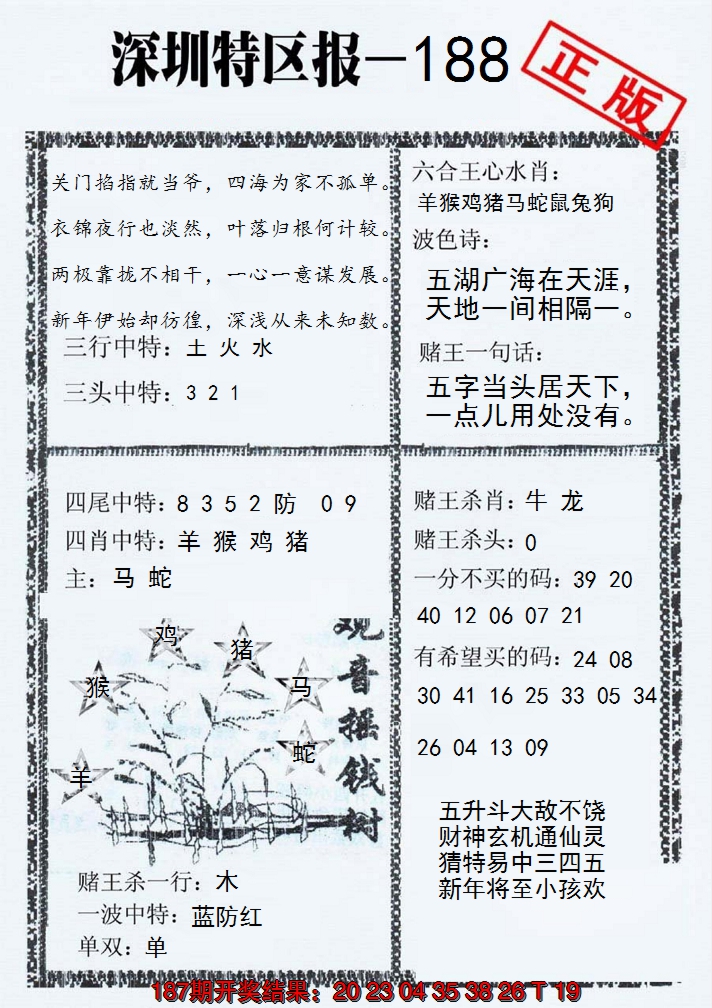 深圳特区报—188
正版
关门掐指就当爷，四海为家不孤单。
衣锦夜行也淡然，叶落归根何计较。
两极靠拢不相干，一心一意谋发展。
新年伊始却彷徨，深浅从来未知数。
三行中特：土 火 水
三头中特：3 2 1
六合王心水肖：
羊猴鸡猪马蛇鼠兔狗
波色诗：
五湖广海在天涯，
天地一间相隔一。
赌王一句话：
五字当头居天下，
一点儿用处没有。
四尾中特：8 3 5 2 防 0 9
四肖中特：羊 猴 鸡 猪
主：马 蛇
鸡
猪
猴
马
蛇
羊
观音摇钱树
赌王杀一行：木
一波中特：蓝防红
单双：单
赌王杀肖：牛 龙
赌王杀头：0
一分不买的码：39 20
40 12 06 07 21
有希望买的码：24 08
30 41 16 25 33 05 34
26 04 13 09
五升斗大敌不饶
财神玄机通仙灵
猜特易中三四五
新年将至小孩欢
187期开奖结果：20 23 04 35 38 26 T 19